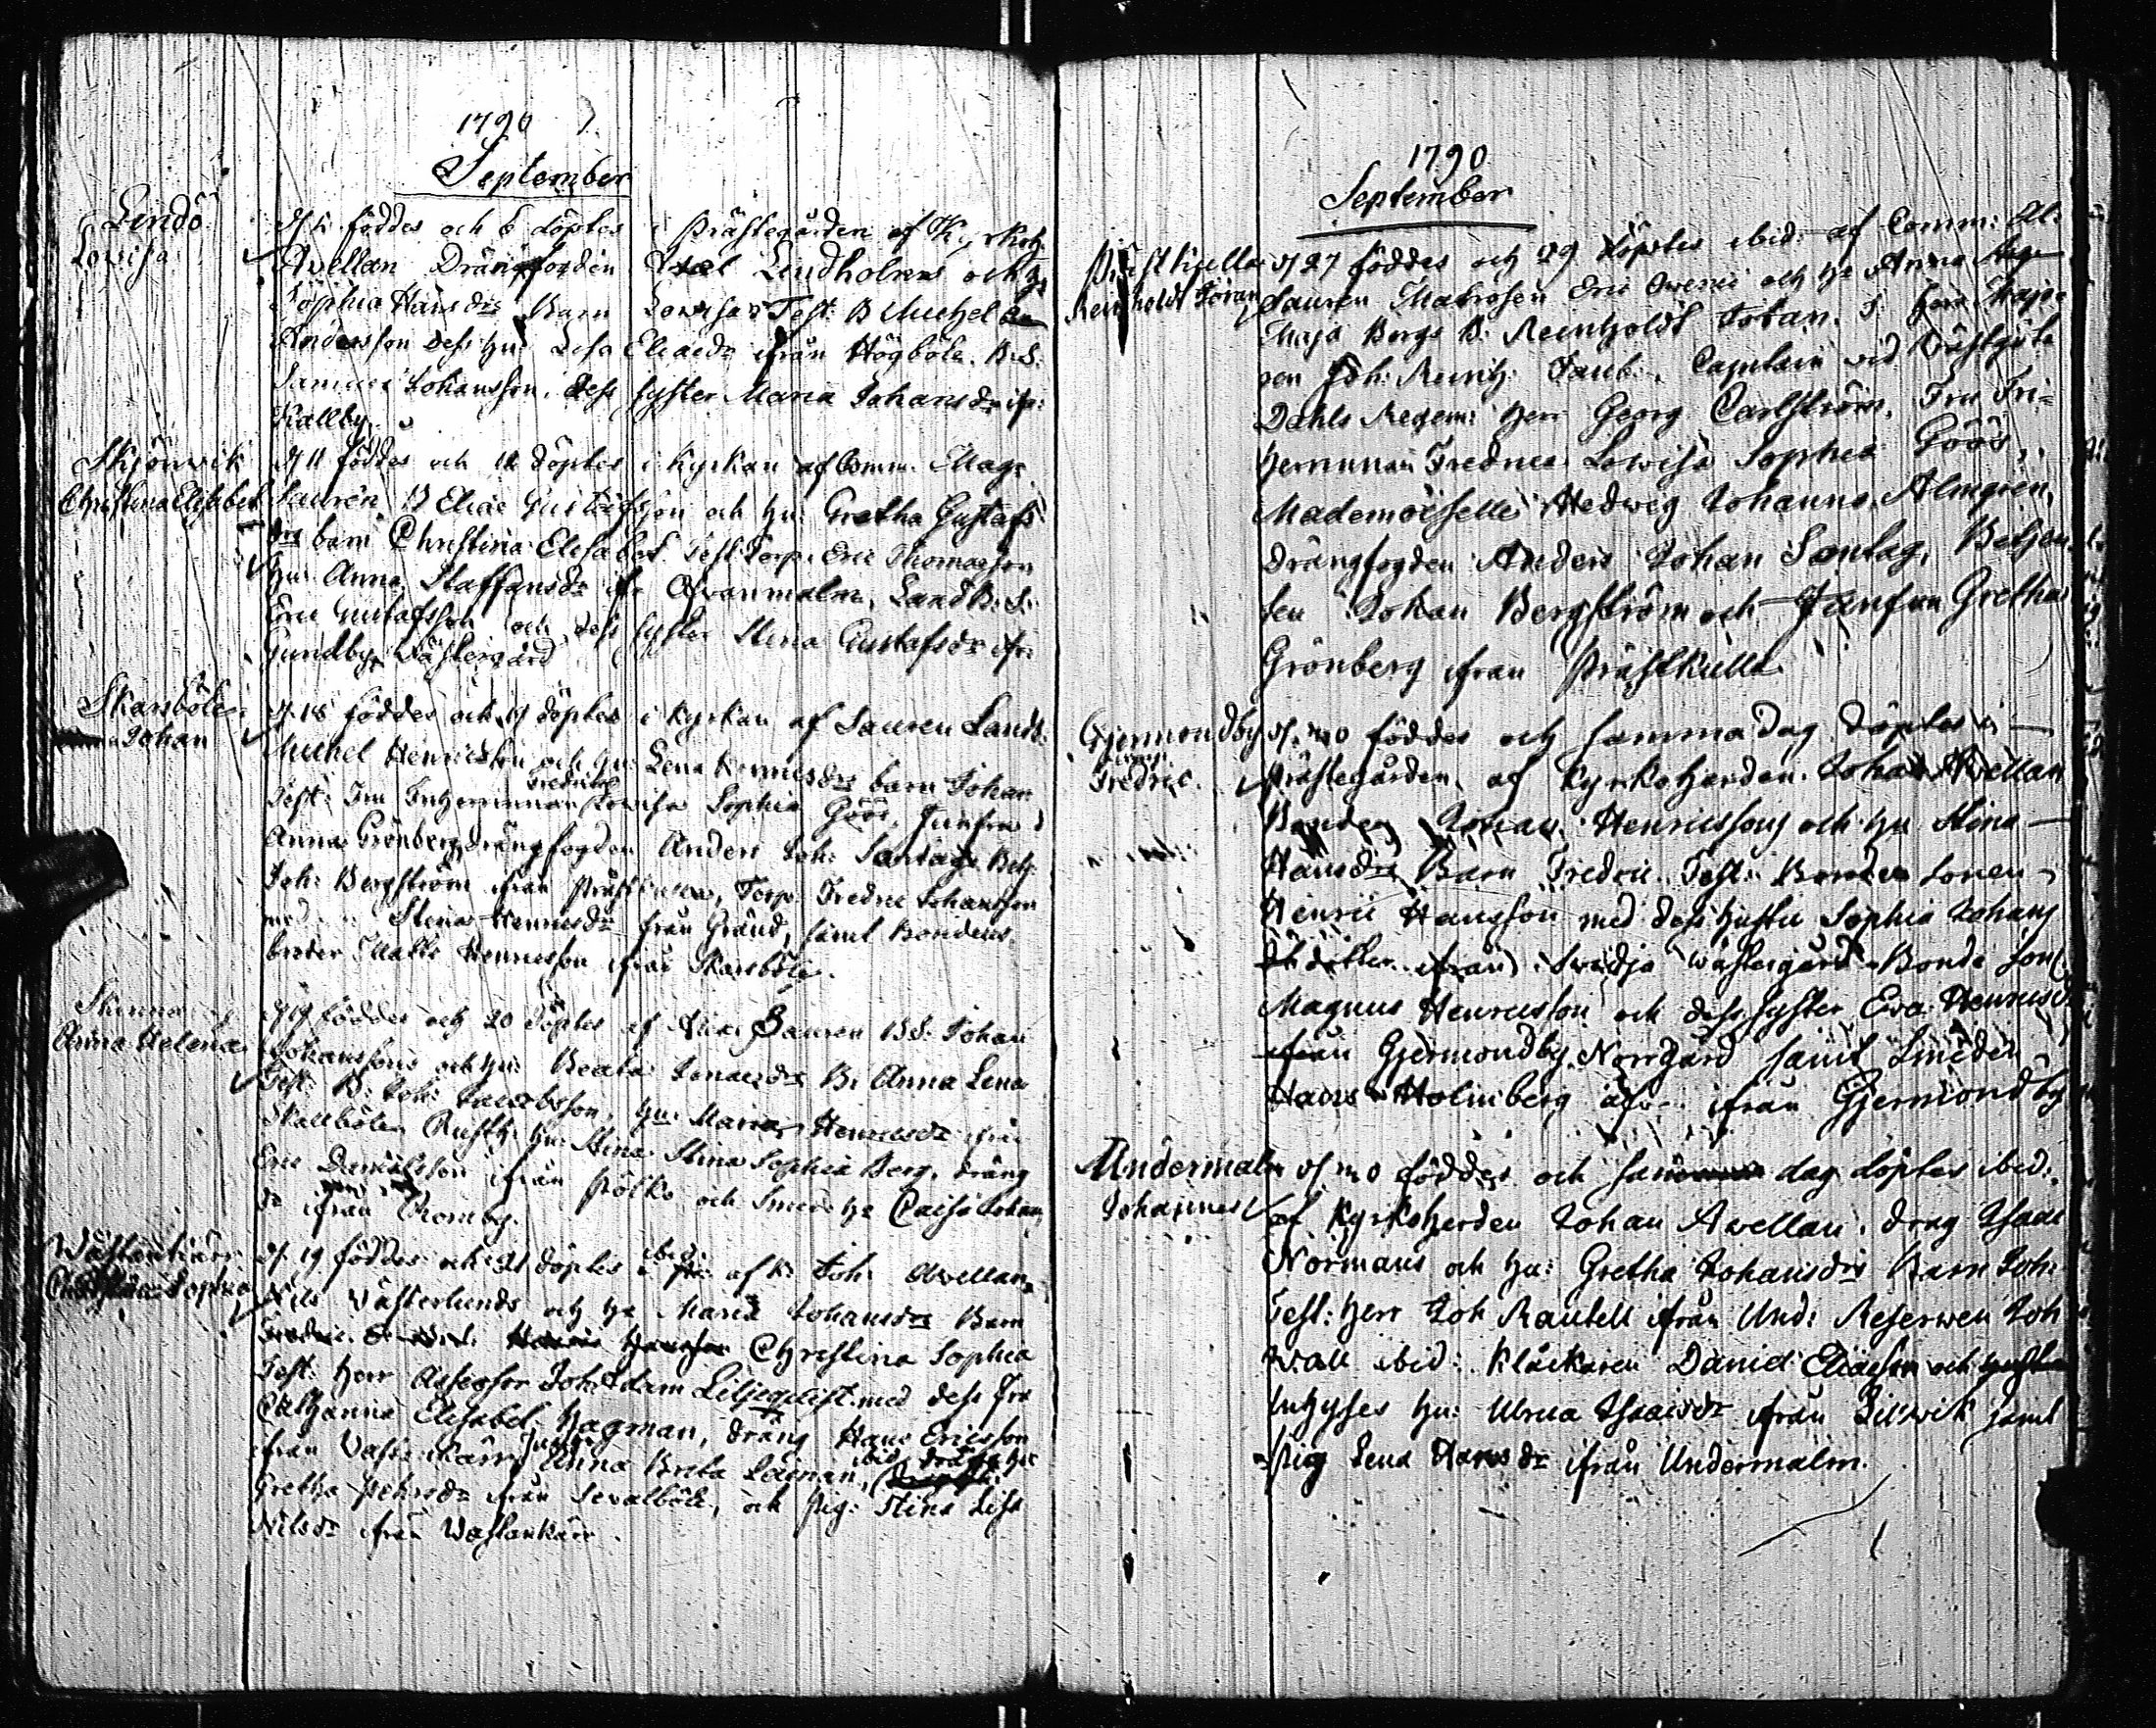 1790
September
Lindö
Lovisa
föddes och 6 döptes i Prästegården af Kyrkoh:
Avellan Drängfogden Lindholms och h:
Sophia Hansdrs Barn Lowisa Test: B Michel
Andersson dess hu: Lisa Eliaedr ifrån Högböle. B.S.
Johansson, dess syster Maria Johansdr if:
Kallby.
Skjönvik
Christina Elisabet
d 11 föddes och 12 döptes i Kyrkan af Comm: Mag:
Lauren, B Elias Gustafsson och hu: Gretha Gustafs
drs barn Christina Elisabet. Test: Torp: Eric Thomasson
hu: Anna Staffansdr fr Qvarnmalm, Landb: S:
Eric Gustafsson och dess syster Stina Gustafsdr ifr:
Gundby Wästergård
Skarsböle
Johan
d 18 föddes och 19 döptes i Kyrkan af Lauren Landb:
Michel Henricsson och hu: Lena Henricsdrs barn Johan
Test: Fru Friherrinnan Fredrica Lowisa Sophia Göös, Junfru
Anna Grönberg, drängfogden Anders Joh: Sontag, Betj:
Joh: Bergström ifrån Prästkulla, Torp: Fredric Johansson
med Stina Henricsdr från Gränd, samt Bondens
broder Matts Henricsson ifrån Skarsböle.
Skinnar
Anna Helena
d 19 föddes och 20 döptes af Lauren BS: Johan
Johanssons och hu: Beata Jonaedrs B: Anna Lena
Test: B: Joh: Jacobsson, hu: Maria Henricsdr ifrån
Skallböle, Rusth: hu: Stina Sophia Berg, dräng
Eric Danielsson ifrån Pölkö och Smed: h: Caisa Johans
dr ifrån Thomby.
Wästankärr
Christina Sophia
d. 19 föddes och 21 döptes ibid: af K: Joh: Avellan
Nils Västerlunds och h: Maria Johansdrs Barn
Christina Sophia
Test: Herr Assessor Joh: Adam Liljeqvist med dess Fru
Catharina Elisabet Hagman, dräng Hans Ericsson
från Väst:kärr, Junfru Anna Brita Laiman, ibid: dräng hu:
Gretha Pehrsdr ifrån Sevalböle, och Pig: Stina Lisa
Nilsdr ifrån Wästankärr.
1790
September
Prästkulla
Reinholdt Johan
d 27 föddes och 29 döptes ibid: af Comm: Al:
Lauren Matrosen Eric Owerie och h: Anna
Maja Bergs B: Reinholdt Johan. T: Herr Majo-
ren Joh: Reinh: Taub:, Captain vid Västgöta
Dahls Regem: Herr Georg Carlström, Fru Fri-
herrinnan Fredrica Lowisa Sophia Göös,
Mademoiselle Hedwig Johanna Almgren,
Drängfogden Anders Johan Sontag, Betjen-
ten Johan Bergström och Junfrun Gretha
Grönberg ifrån Prästkulla.
Gjermondby
Fredric
d. 20 föddes och samma dag döptes i
Prästegården, af Kyrkoherden Johan Avellan
Bonden Johan Henricssons och hu Stina
Hansdrs Barn Fredric. Test: Bonde sonen
Henric Hansson med dess hustru Sophia Johans
dotter ifrån Swidja Wästergård Bonde son
Magnus Henricsson och dess syster Eva Henricsdr
ifrån Gjermondby Norrgård samt Smeden
Hans Holmberg äfv: ifrån Gjermondby
Undermalm
Johannes
d. 20 föddes och samma dag döptes ibid:
af Kyrkoherden Johan Avellan, Dräng Isaac
Normans och hu: Gretha Johansdrs Barn Joh:
Test: Herr Joh Rautell ifrån Und: Reserwen Joh
Wall ibid: Klåckaren Daniel Eliaeson och
Inhyses hu: Ulrica Isaacsdr ifrån Lillwik samt
Pig Lena Hansdr ifrån Undermalm.